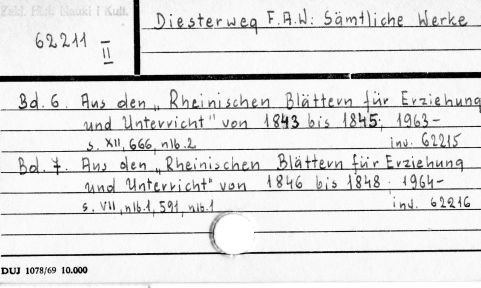 Zakł. Hist. Nauki i Kult.
Diesterweg F.A.W: Sämtliche Werke
62211 II
Bd. 6. Aus den „Rheinischen Blättern für Erziehung
und Unterricht" von 1843 bis 1845; 1963-
s. XII, 666, nlb. 2
inv. 62215
Bd. 7. Aus den „Rheinischen Blättern für Erziehung
und Unterricht" von 1846 bis 1848; 1964-
s. VII, nlb. 1, 591, nlb. 1
inv. 62216
DUJ 1078/69 10.000